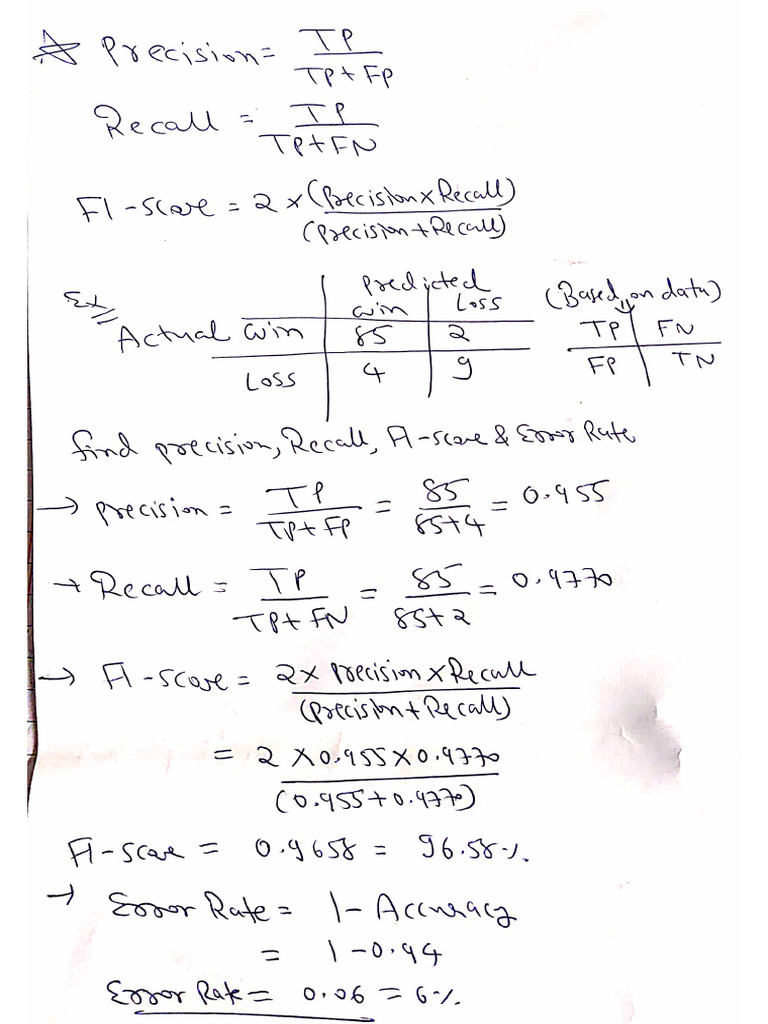 ☆ Precision = TP / TP+FP
Recall = TP / TP+FN
F1-score = 2 × (Precision × Recall) / (Precision + Recall)
Ex
Predicted
win Loss
(Based on data)
Actual win 85 2
TP FN
Loss 4 9
FP TN
find precision, Recall, F1-score & Error Rate
→ precision = TP / TP+FP = 85 / 85+4 = 0.955
→ Recall = TP / TP+FN = 85 / 85+2 = 0.9770
→ F1-score = 2 × precision × Recall / (precision + Recall)
= 2 × 0.955 × 0.9770 / (0.955 + 0.9770)
F1-score = 0.9658 = 96.58%.
→ Error Rate = 1 - Accuracy
= 1 - 0.94
Error Rate = 0.06 = 6%.